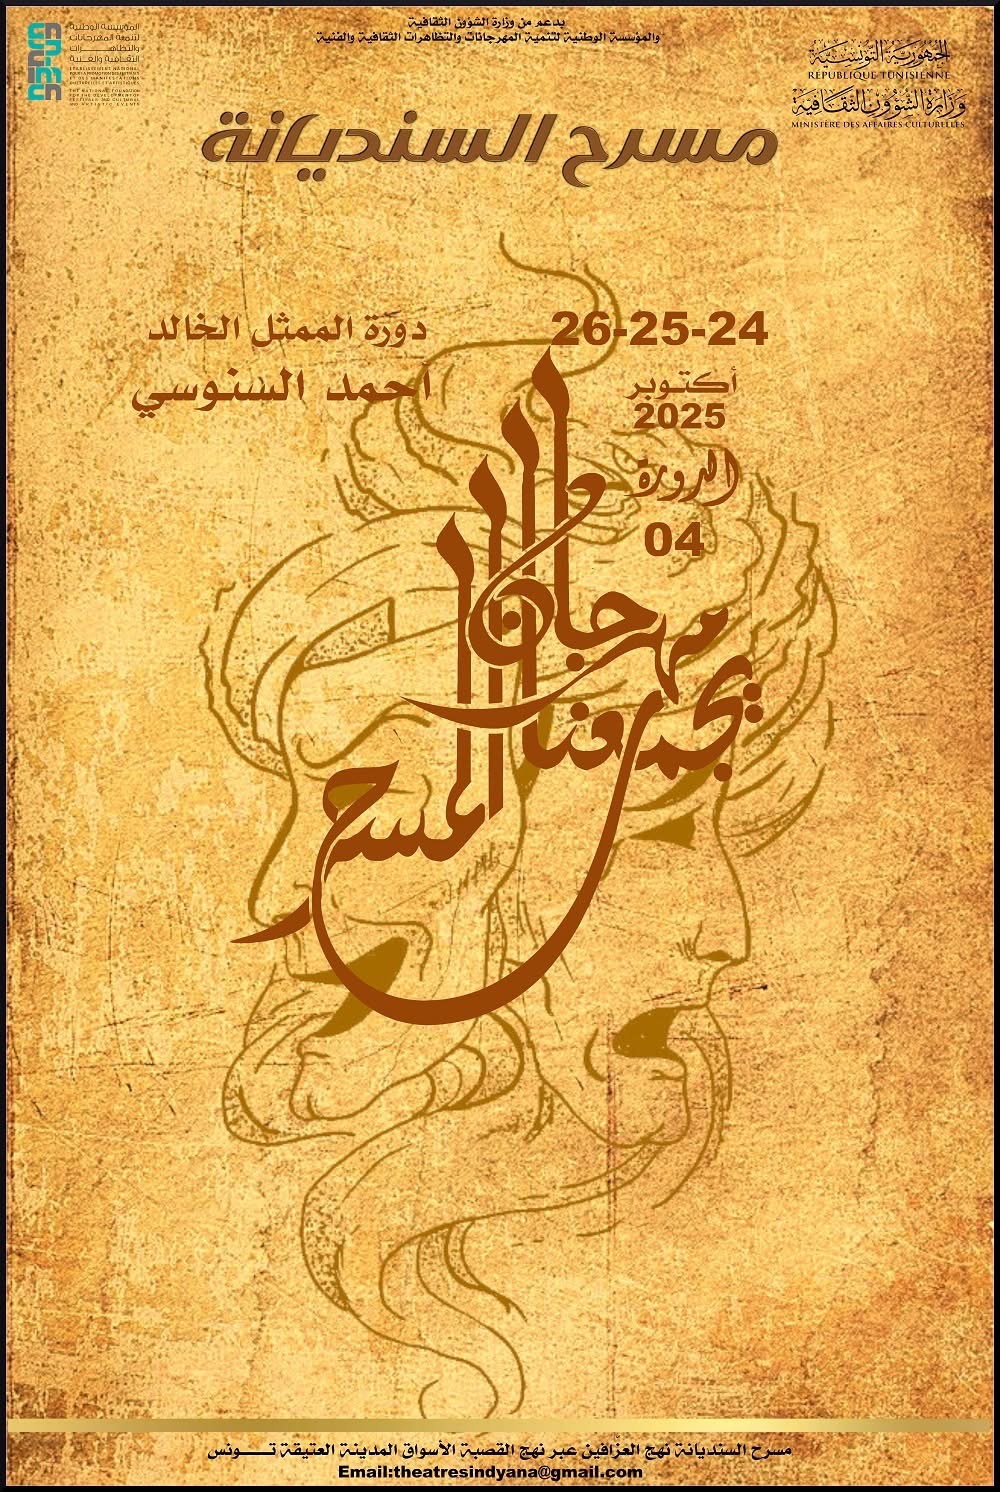 بدعم من وزارة الشؤون الثقافية
والمؤسسة الوطنية لتنمية المهرجانات والتظاهرات الثقافية والفنية
المؤسسة الوطنية
لتنمية المهرجانات
والتظاهرات
الثقافية والفنية
ETABLISSEMENT NATIONAL
POUR LA PROMOTION DES FESTIVALS
ET DES MANIFESTATIONS
CULTURELLES ET ARTISTIQUES
THE NATIONAL FOUNDATION
FOR THE DEVELOPMENT OF
FESTIVALS AND CULTURAL
AND ARTISTIC EVENTS
الجمهورية التونسية
RÉPUBLIQUE TUNISIENNE
وزارة الشؤون الثقافية
MINISTÈRE DES AFFAIRES CULTURELLES
مسرح السنديانة
26-25-24
أكتوبر
2025
الدورة
04
دورة الممثل الخالد
أحمد السنوسي
مهرجان
يجمعنا
المسرح
مسرح السنديانة نهج العزّافين عبر نهج القصبة الأسواق المدينة العتيقة تونس
Email:theatresindyana@gmail.com